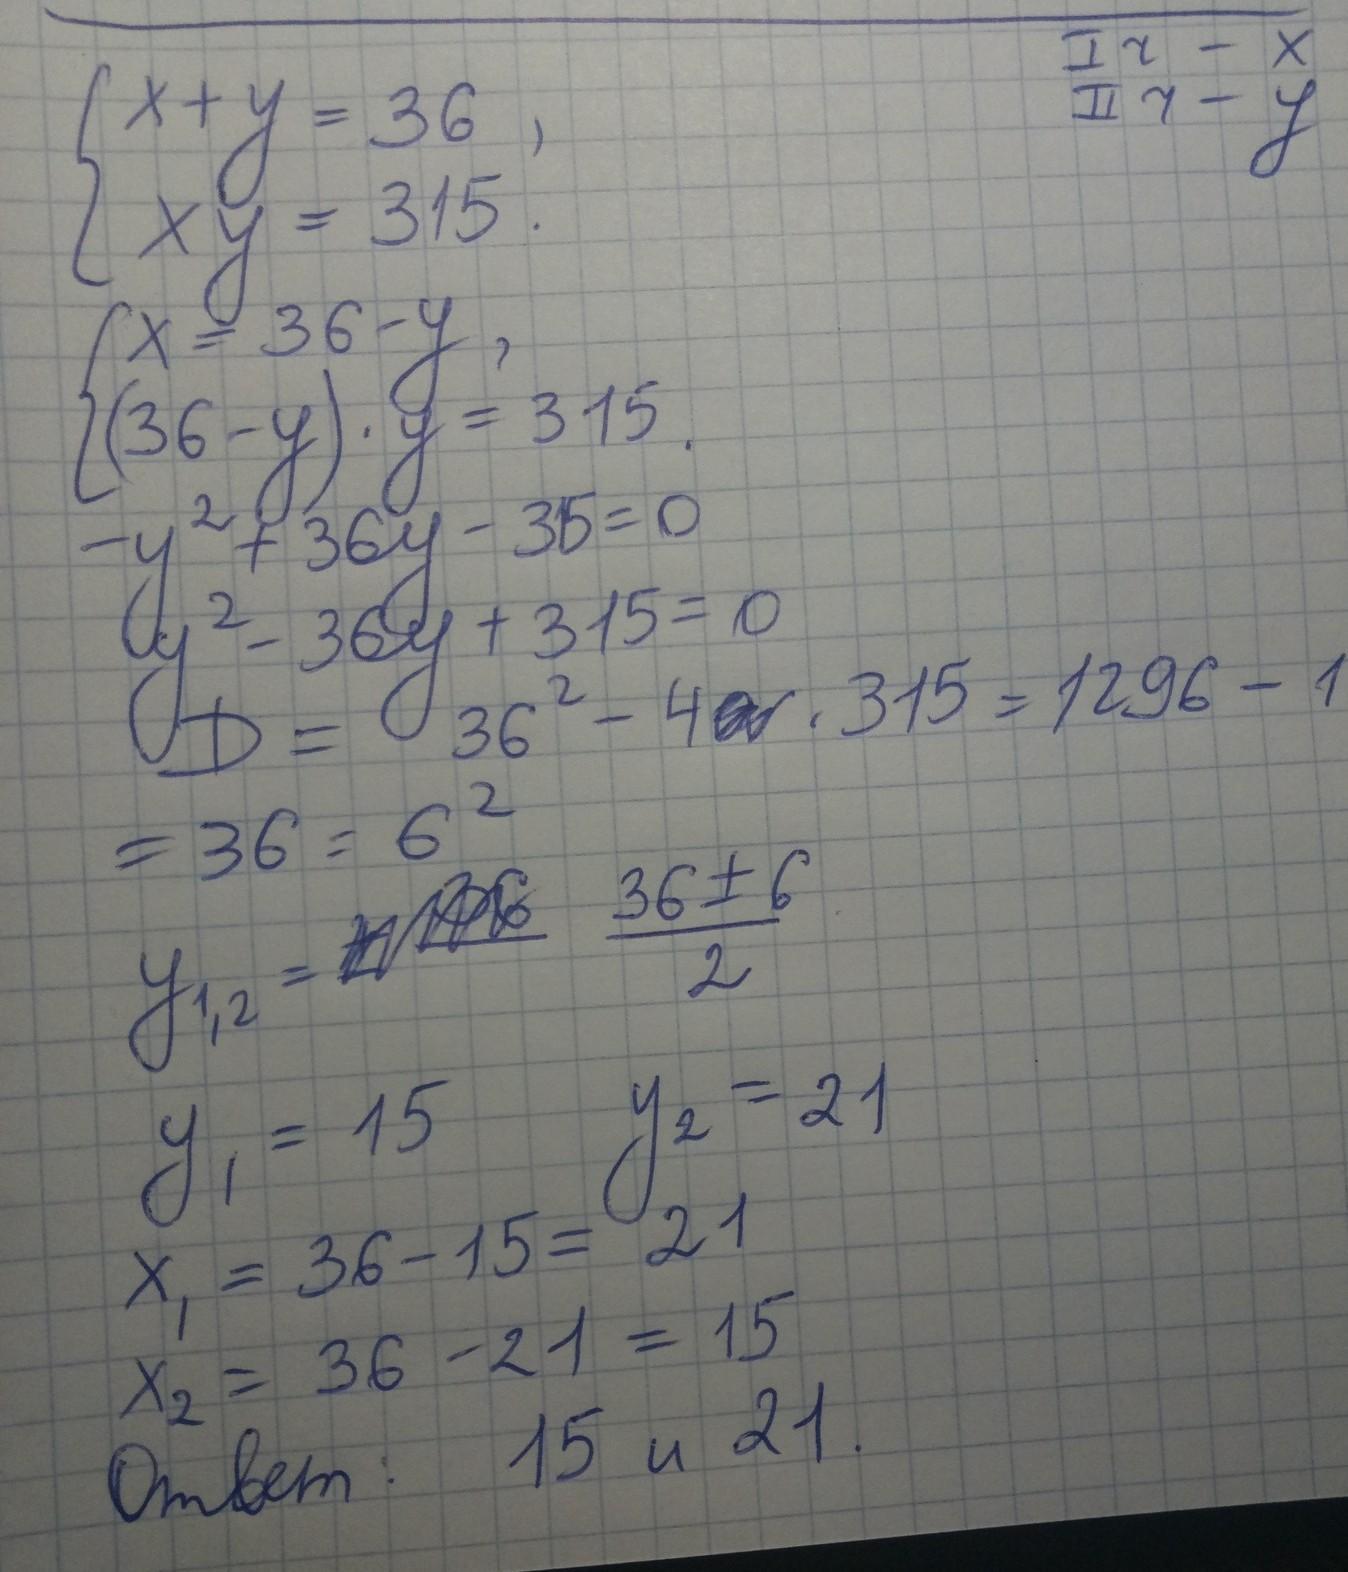 I ч - x
II ч - y
x + y = 36,
xy = 315.
x = 36 - y,
(36 - y) · y = 315.
-y² + 36y - 315 = 0
y² - 36y + 315 = 0
D = 36² - 4 · 315 = 1296 - 1
= 36 = 6²
y1,2 = (36 ± 6) / 2
y1 = 15 y2 = 21
x1 = 36 - 15 = 21
x2 = 36 - 21 = 15
Ответ: 15 и 21.